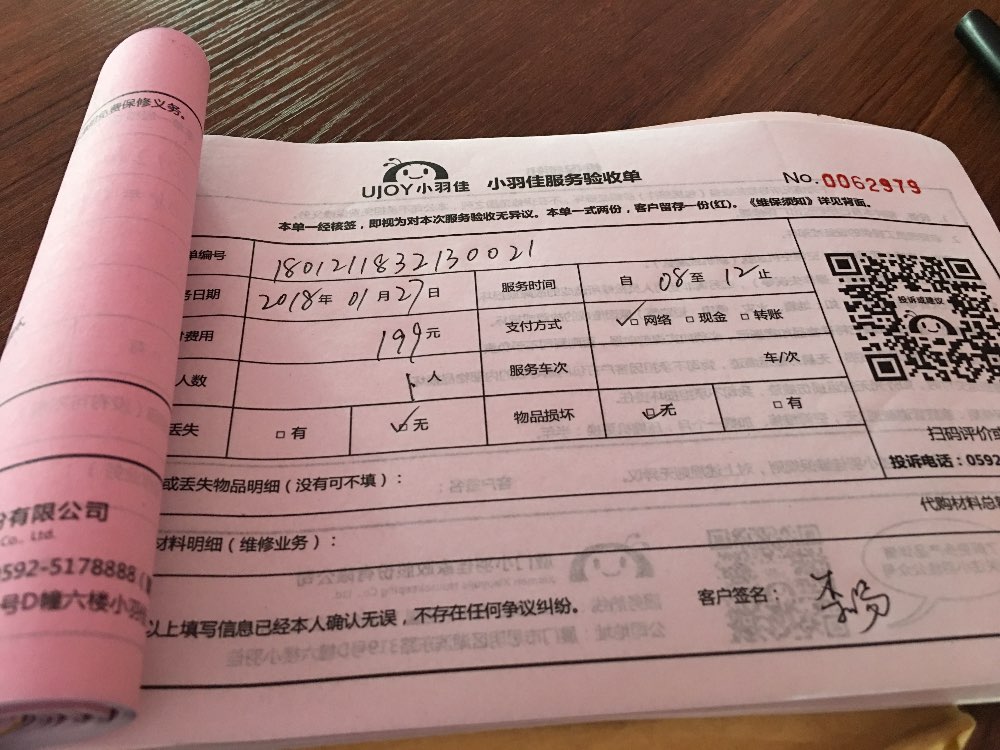 免费保修义务。
UJOY小羽佳 小羽佳服务验收单 No.0062979
本单一经核签，即视为对本次服务验收无异议。本单一式两份，客户留存一份(红)。《维保须知》详见背面。
单编号 1801211832130021
务日期 2018年01月27日 服务时间 自08至12止
费用 199元 支付方式 ☑网络 □现金 □转账
人数 1人 服务车次 车/次
丢失 □有 ☑无 物品损坏 ☑无 □有
投诉或建议
扫码评价或
投诉电话：0592
或丢失物品明细（没有可不填）：
代购材料总
材料明细（维修业务）：
以上填写信息已经本人确认无误，不存在任何争议纠纷。 客户签名：
份有限公司
Co., Ltd.
0592-5178888
号D幢六楼小羽佳